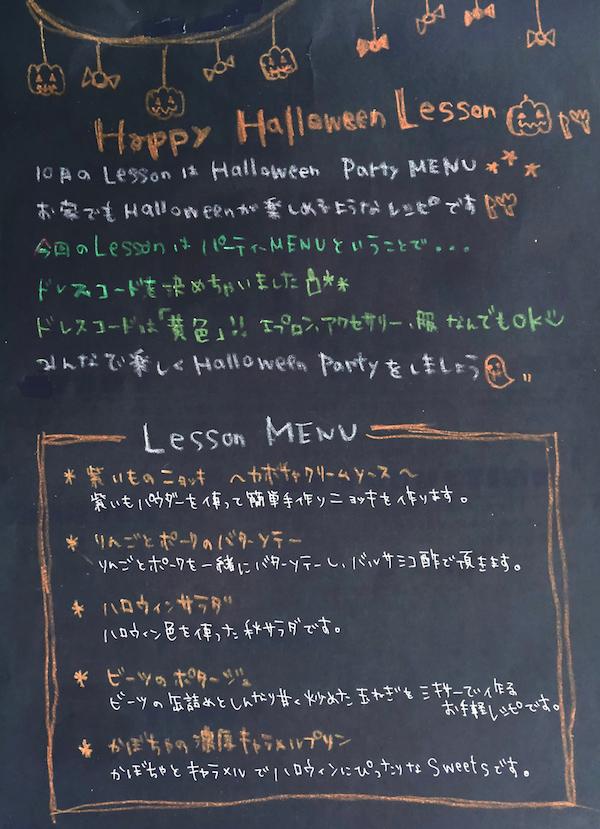 Happy Halloween Lesson
10月のLessonは Halloween Party MENU
お家でもHalloweenが楽しめるようなレシピです
今回のLessonはパーティーMENUということで...
ドレスコードを決めちゃいました
ドレスコードは「黄色」!! エプロン、アクセサリー、服 なんでもOK
みんなで楽しくHalloween Partyをしましょう
Lesson MENU
* 紫いものニョッキ 〜カボチャクリームソース〜
紫いもパウダーを使って簡単手作りニョッキを作ります。
* りんごとポークのバターソテー
りんごとポークを一緒にバターソテーし、バルサミコ酢で頂きます。
* ハロウィンサラダ
ハロウィン色を使った秋サラダです。
* ビーツのポタージュ
ビーツの缶詰めとしんなり甘く炒めた玉ねぎをミキサーで作る
お手軽レシピです。
* かぼちゃの濃厚キャラメルプリン
かぼちゃとキャラメルでハロウィンにぴったりなSweetsです。